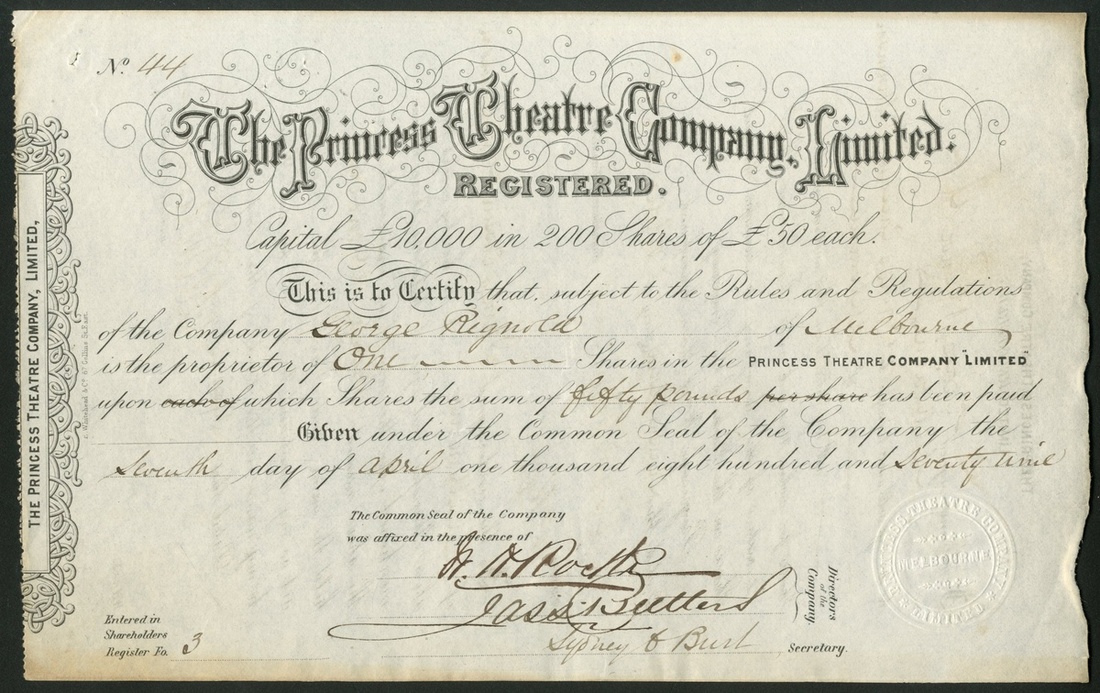 No. 44
The Princess Theatre Company, Limited.
REGISTERED.
Capital £10,000 in 200 Shares of £50 each.
This is to Certify that, subject to the Rules and Regulations
of the Company George Rignold of Melbourne
is the proprietor of One Shares in the PRINCESS THEATRE COMPANY "LIMITED"
upon each of which Shares the sum of fifty pounds per share has been paid
Given under the Common Seal of the Company the
Seventh day of April one thousand eight hundred and Seventy nine
The Common Seal of the Company
was affixed in the presence of
Directors
of the
Company.
Sydney Burt Secretary.
Entered in
Shareholders
Register Fo. 3
THE PRINCESS THEATRE COMPANY, LIMITED,
PRINCESS THEATRE COMPANY
MELBOURNE
LIMITED